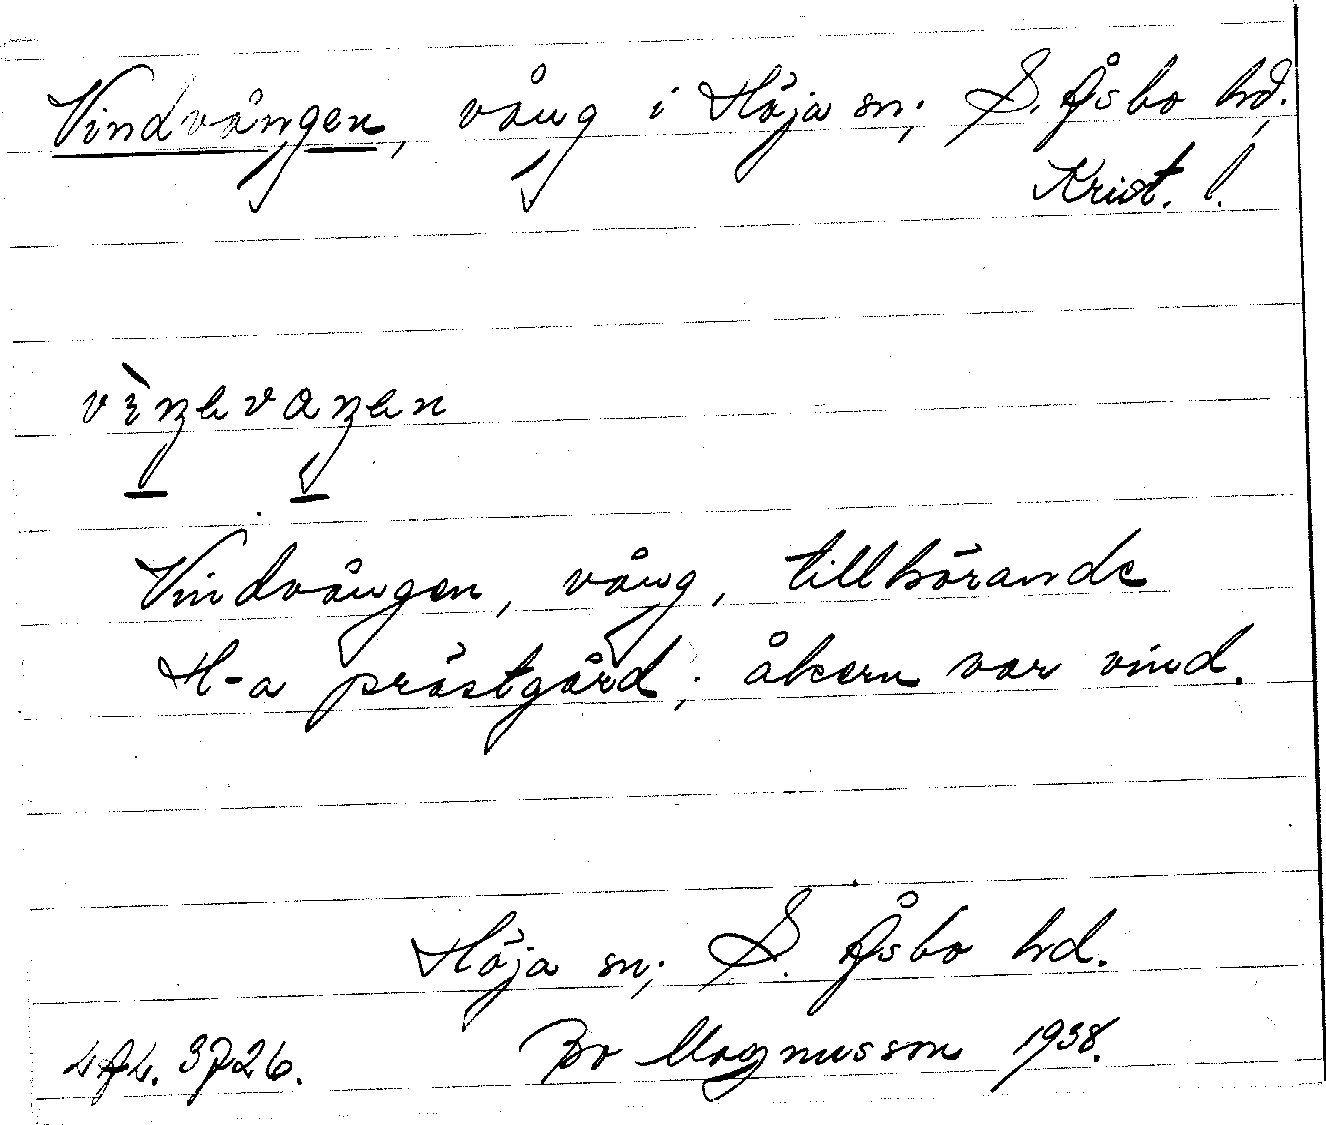 Vindvången, vång i Höja sn; S. Åsbo hd,
Krist. l.
Vindvången, vång, tillhörande
H-a prästgård; åkern var vind.
Höja sn; S. Åsbo hd.
Bo Magnusson 1938.